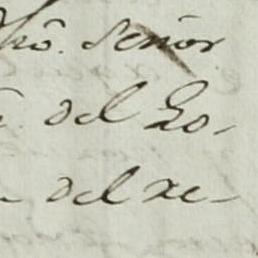 tro. Señor
del Go-
del re-